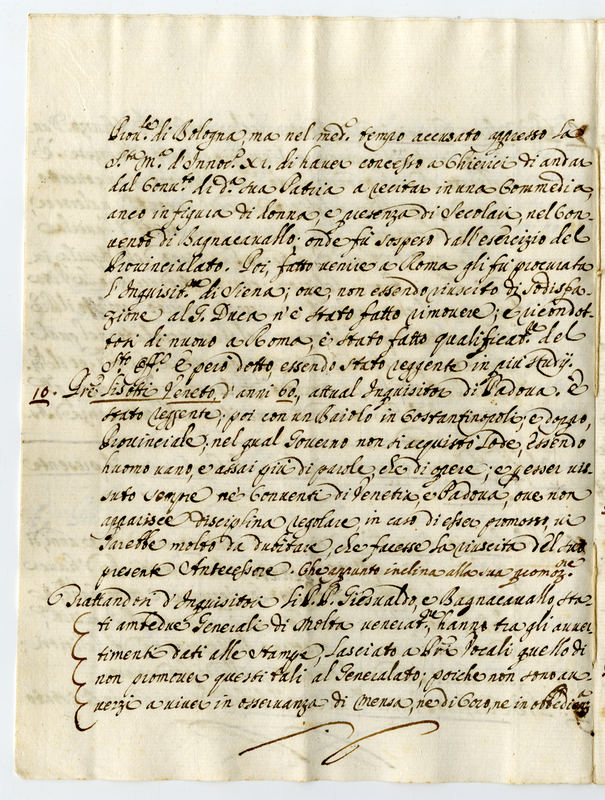 Prou.le di Bologna, ma nel med.o tempo accusato appresso la
S.ta m.a d'Innoc.o XI. di hauer concesso a Chierici di andar
dal Conu.to di d.a sua Patria a recitar in una Commedia,
anco in figura di donna, e presenza di Secolari, nel Con
uento di Bagnacauallo; onde fù sospeso dall'esercizio del
Prouincialato. Poi, fatto uenire a Roma gli fù procurata
l'Inquisit.ne di Siena; oue, non essendo riuscito di sodisfa
zione al G. Duca n'è stato fatto rimouere; e ricondot
tosi di nuouo a Roma, è stato fatto qualificat.re del
S.to Off.o E però dotto, essendo stato reggente in più studij.
10. Fre Lisotti Veneto, d'anni 60, attual Inquisitor di Padoua. È
stato reggente; poi con un Bailo in Costantinopoli; e dopo,
Prouinciale; nel qual Gouerno non si acquistò Lode, essendo
huomo uano, e assai più di parole, che di opere; e p esser uis
suto sempre ne Conuenti di Venetia, e Padoua, oue non
apparisce disciplina regolare, in caso di esser promosso, ui
sarebbe molto da dubitare, che facesse la riuscita del suo
presente Antecessore. Che appunto inclina alla sua promoz.ne
Trattandosi d'Inquisitori li P.P. Giesualdo, e Bagnacauallo, sta
ti ambedue Generali di molta uenerat.ne, hanno tra gli auuer
timenti dati alle stampe, lasciato a Pri Vocali quello di
non promouer questi tali al Generalato; poiche non sono au
uezzi a uiuer in osseruanza di mensa, ne di Coro, ne in obbedienza